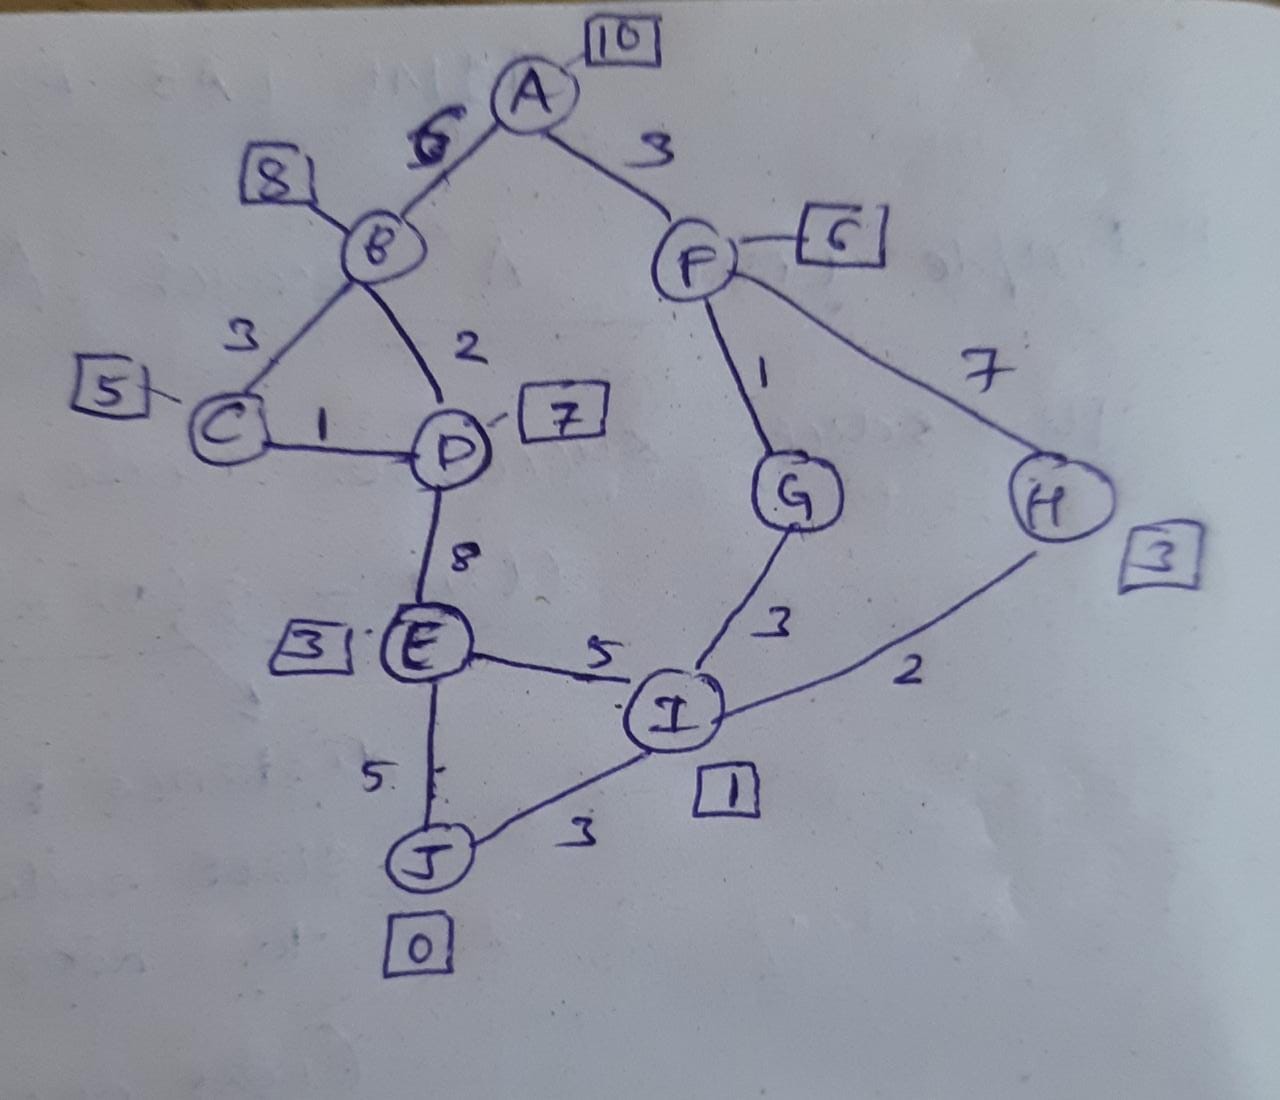 10
A
6
3
8
B
F
6
3
2
1
7
5
C
1
D
7
G
H
8
3
3
E
5
3
I
2
5
3
1
J
0